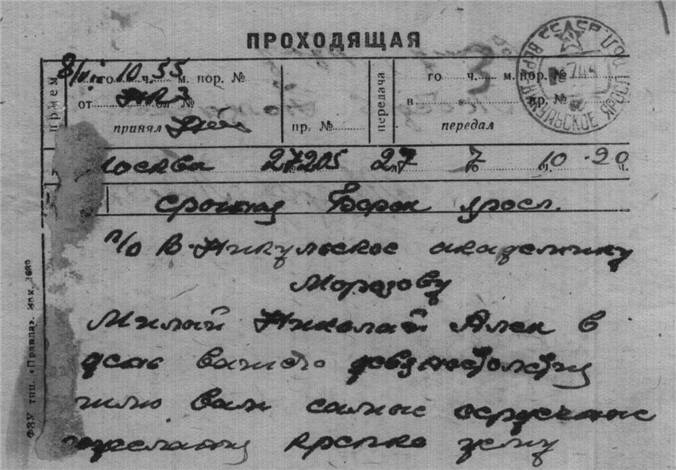 ПРОХОДЯЩАЯ
8/VII го 10 ч. 55 м. пор. №
го ч. м. пор. №
прием
от
передача
в пр. №
принял
пр. №
передал
3
СССР
В. НИКУЛЬСКОЕ ЯРОСЛ
Москва 27205 27 7 10-20
срочная Борок яросл.
п/о В-Никульское академику
Морозову
Милый Николай Алек в
день вашего девяностолетия
шлю вам самые сердечные
пожелания крепко жму
ФЗУ тип. «Правда»